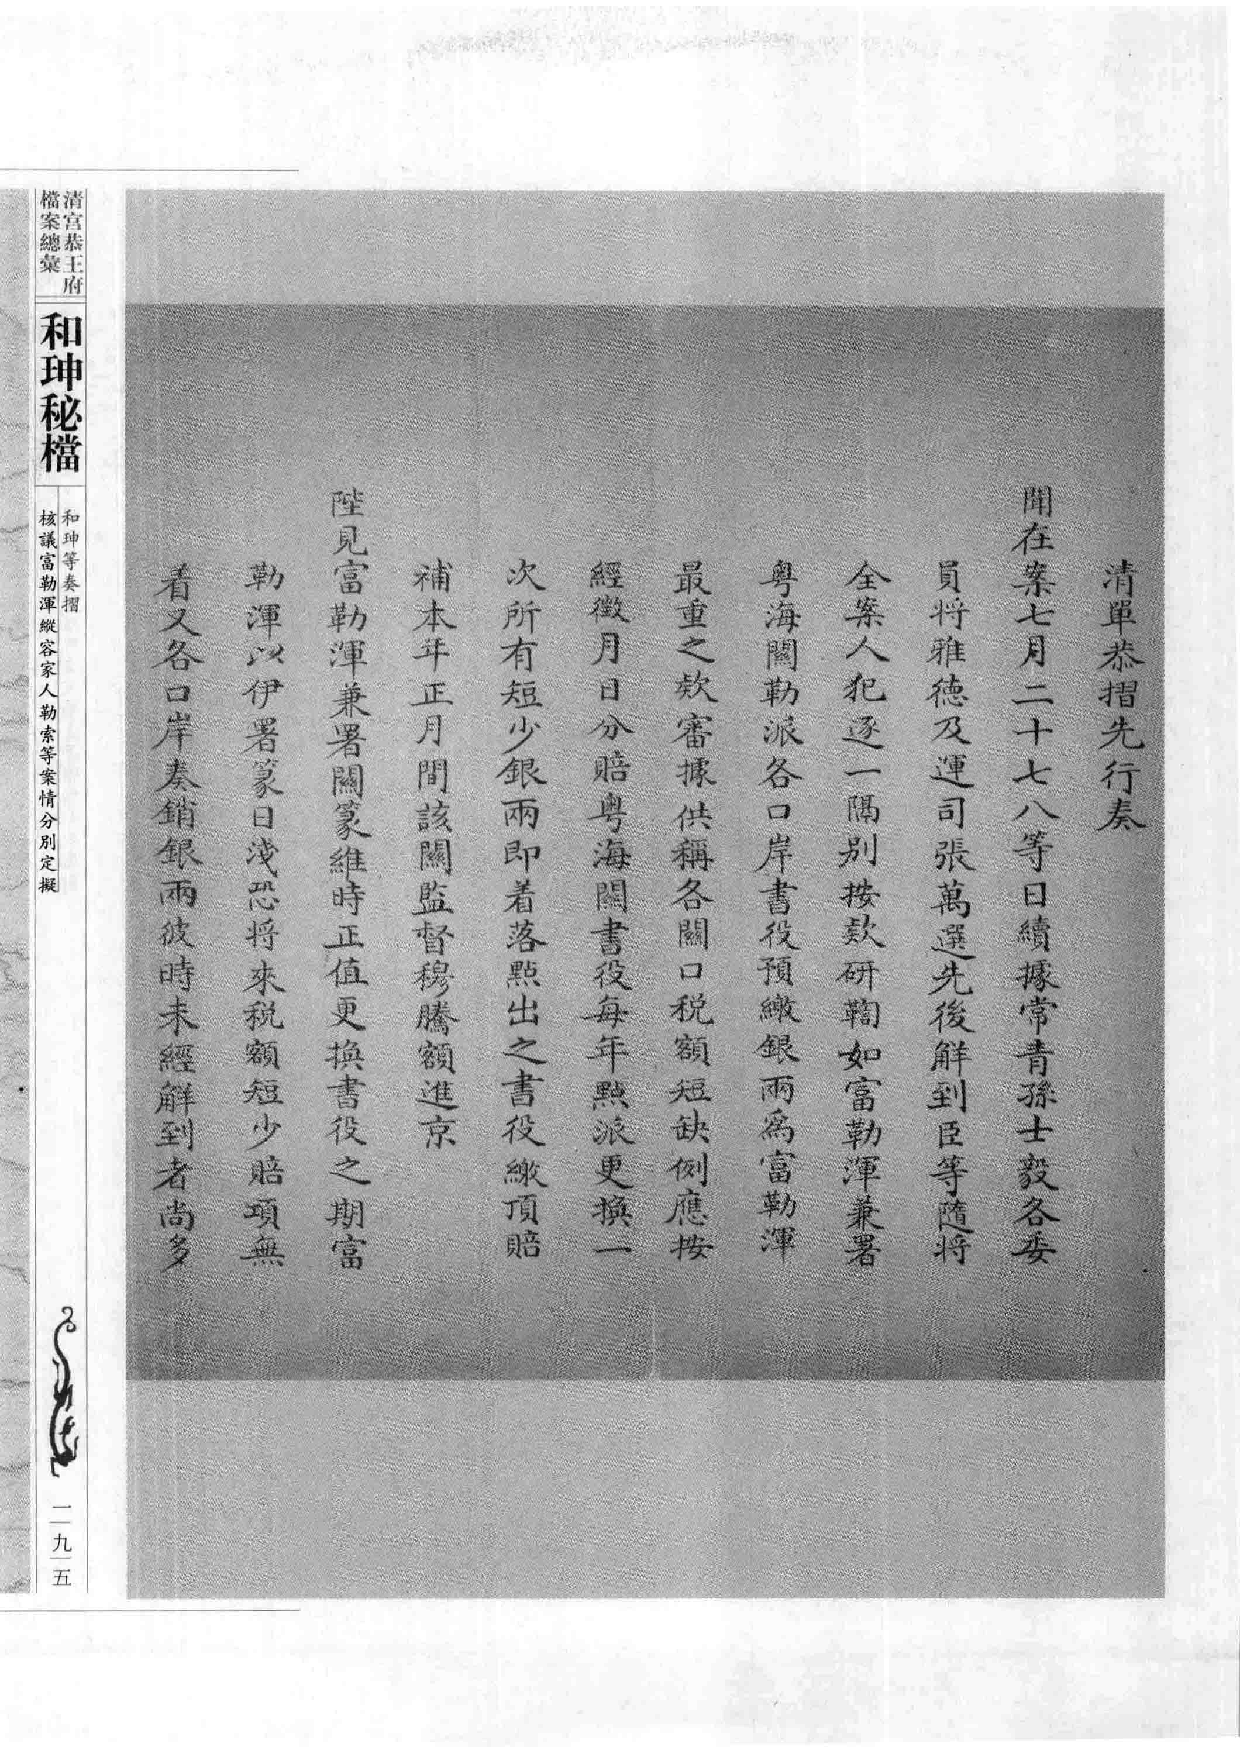 清單恭摺先行奏
聞在案七月二十七八等日續據常青孫士毅各委
員將雅德及運司張萬選先後解到臣等隨將
全案人犯逐一隔別按款研鞫如富勒渾兼署
粵海關勒派各口岸書役預繳銀兩為富勒渾
最重之款審據供稱各關口稅額短缺例應按
經徵月日分賠粵海關書役每年點派更換一
次所有短少銀兩即着落點出之書役繳頂賠
補本年正月間該關監督穆騰額進京
陛見富勒渾兼署關篆維時正值更換書役之期富
勒渾以伊署篆日淺恐將來稅額短少賠項無
着又各口岸奏銷銀兩彼時未經解到者尚多
清宮恭王府
檔案總彙
和珅秘檔
和珅等奏摺
核議富勒渾縱容家人勒索等案情分別定擬
二九五